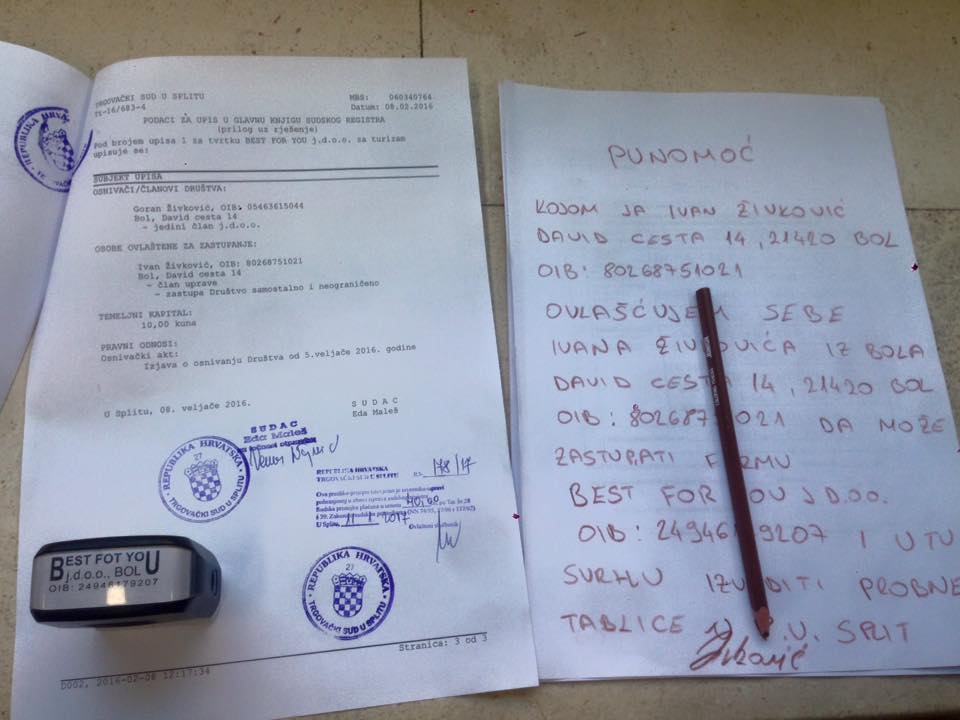 TRGOVAČKI SUD U SPLITU
Tt-16/683-4
MBS: 060340764
Datum: 08.02.2016
PODACI ZA UPIS U GLAVNU KNJIGU SUDSKOG REGISTRA
(prilog uz rješenje)
Pod brojem upisa 1 za tvrtku BEST FOR YOU j.d.o.o. za turizam
upisuje se:
SUBJEKT UPISA
OSNIVAČI/ČLANOVI DRUŠTVA:
Goran Živković, OIB: 05463615044
Bol, David cesta 14
- jedini član j.d.o.o.
OSOBE OVLAŠTENE ZA ZASTUPANJE:
Ivan Živković, OIB: 80268751021
Bol, David cesta 14
- član uprave
- zastupa Društvo samostalno i neograničeno
TEMELJNI KAPITAL:
10,00 kuna
PRAVNI ODNOSI:
Osnivački akt:
Izjava o osnivanju Društva od 5.veljače 2016. godine
U Splitu, 08. veljače 2016.
S U D A C
Eda Maleš
SUDAC
Eda Maleš
za točnost otpravka
REPUBLIKA HRVATSKA
27
TRGOVAČKI SUD U SPLITU
REPUBLIKA HRVATSKA
TRGOVAČKI SUD U SPLITU
178/17
40,00
U Splitu, 11-1-2017
Ovlašteni službenik
REPUBLIKA HRVATSKA
27
TRGOVAČKI SUD U SPLITU
Stranica: 3 od 3
D002, 2016-02-08 12:17:34
REPUBLIKA HRVAT
BEST FOT YOU
j.d.o.o., BOL
OIB: 24946179207
PUNOMOĆ
KOJOM JA IVAN ŽIVKOVIĆ
DAVID CESTA 14, 21420 BOL
OIB: 80268751021
OVLAŠĆUJEM SEBE
IVANA ŽIVKOVIĆA IZ BOLA
DAVID CESTA 14, 21420 BOL
OIB: 802687 1021 DA MOŽE
ZASTUPATI FIRMU
BEST FOR YOU J.D.O.O.
OIB: 249461 9207 I U TU
SVRHU IZVADITI PROBNE
TABLICE U P.U. SPLIT